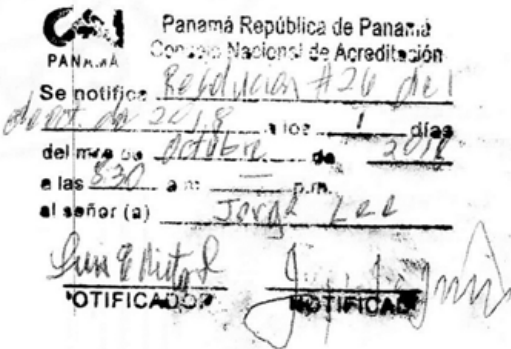 CNA
PANAMÁ
Panamá República de Panamá
Consejo Nacional de Acreditación
Se notifica Resolución #26 del
de oct. de 2018 a los 1 días
del mes de octubre de 2018
a las 8:30 a.m. — p.m.
al señor (a) Jorge Lee
NOTIFICADOR NOTIFICADO